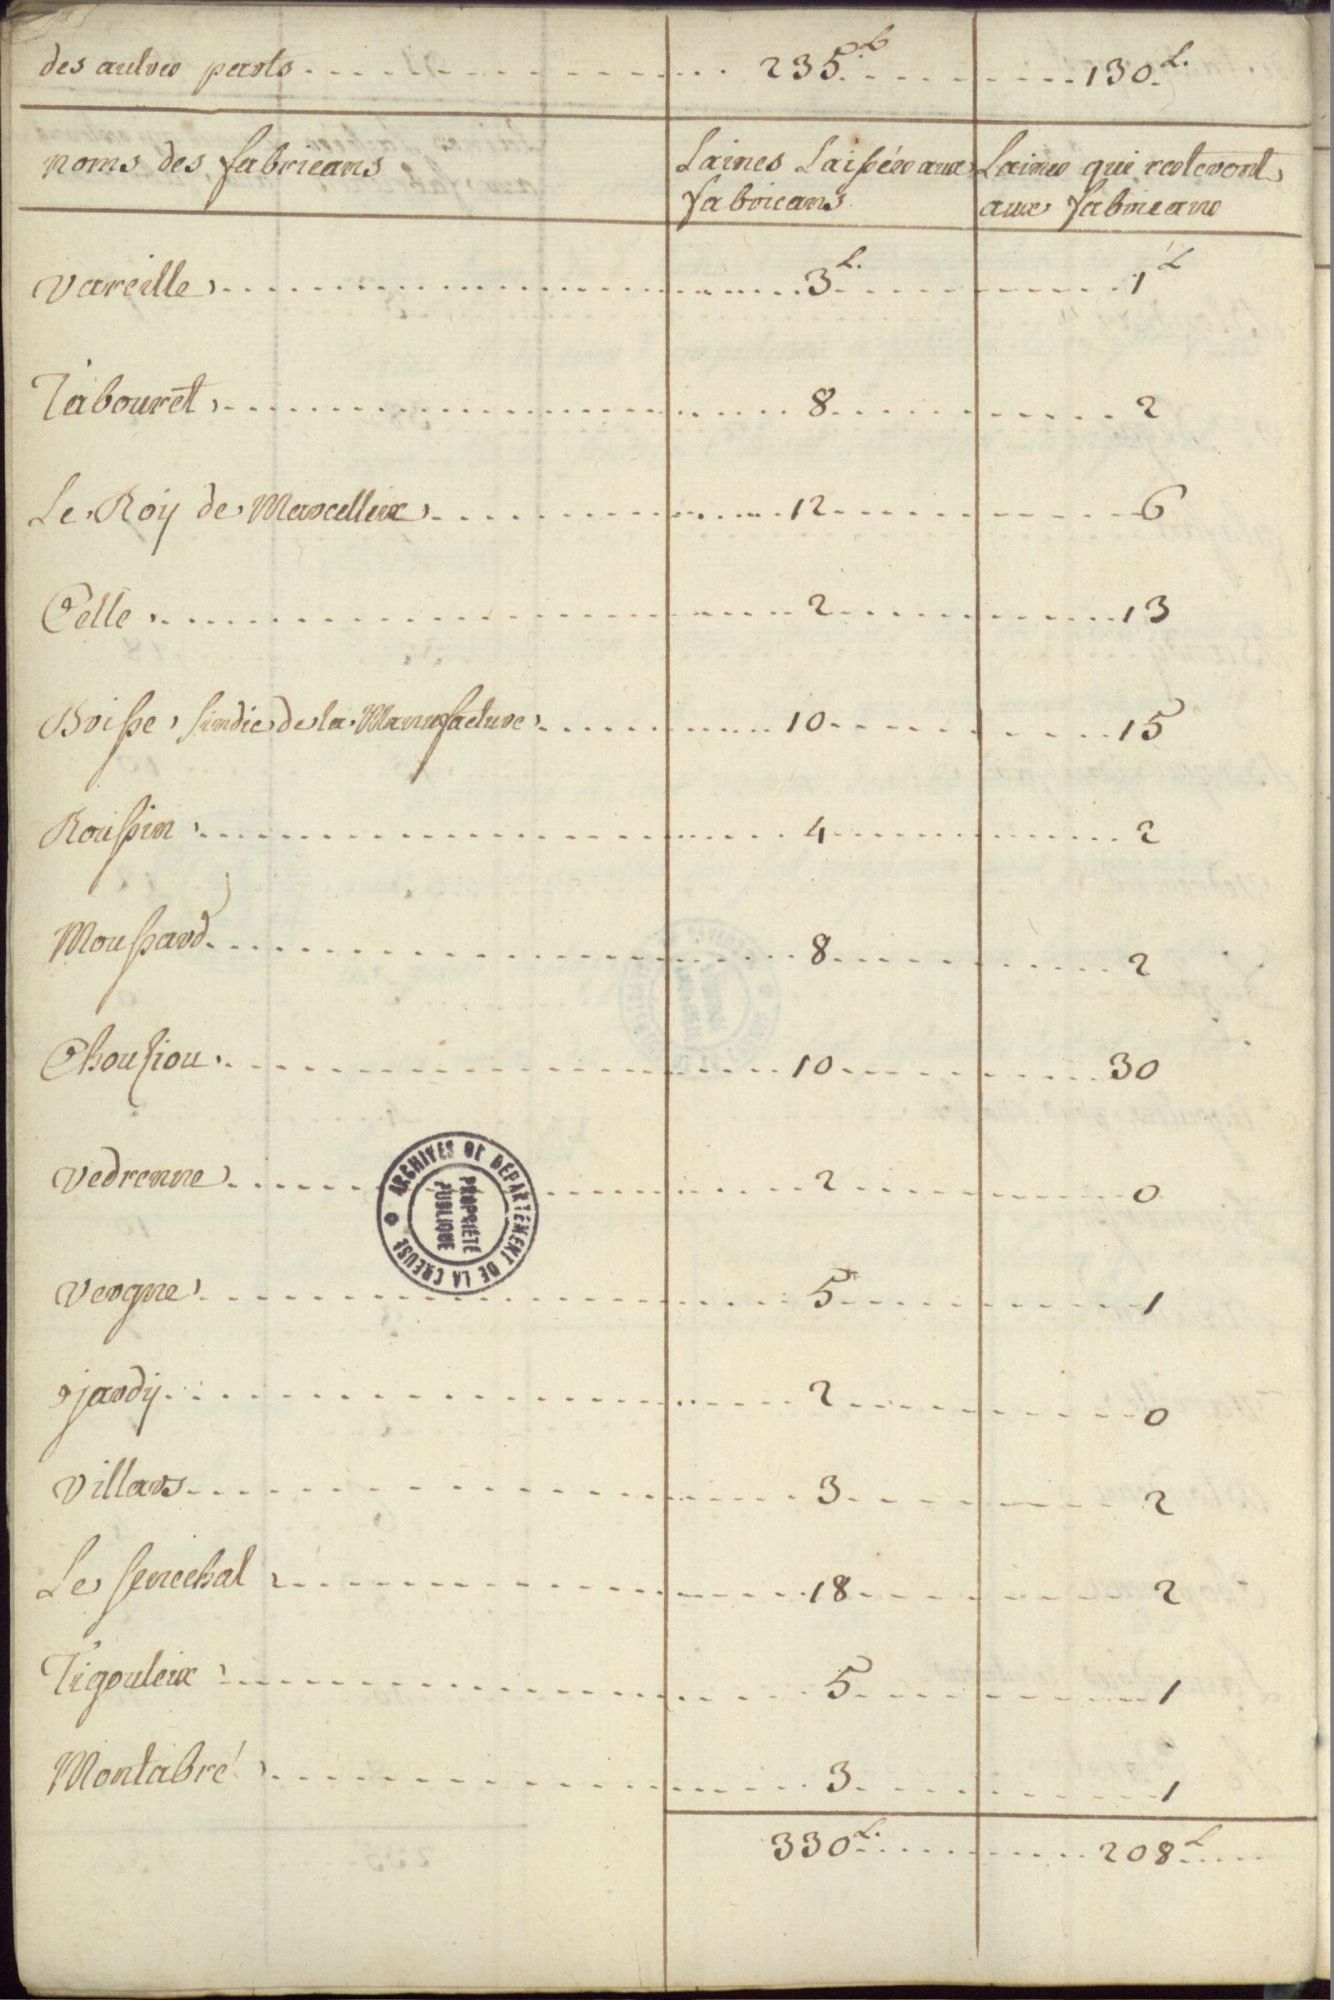 des autres parts 235 L. 130 L.
noms des fabricans
Laines Laissées aux fabricans
Laines qui resteront aux fabricans
Vareille 3 L. 1 L
Tabouret 8 2
Le Roy de Marcelleix 12 6
Celle 2 13
Boisse sindic de la Manufacture 10 15
Roussin 4 2
Moussard 8 2
Choussiou 10 30
Vedrenne 2 0
Vergne 5 1
jardy 2 0
Villars 3 2
Le senechal 18 2
Tigouleix 5 1
Montabré 3 1
330 L. 208 L
ARCHIVES DE DÉPARTEMENT DE LA CREUSE
PROPRIÉTÉ
PUBLIQUE